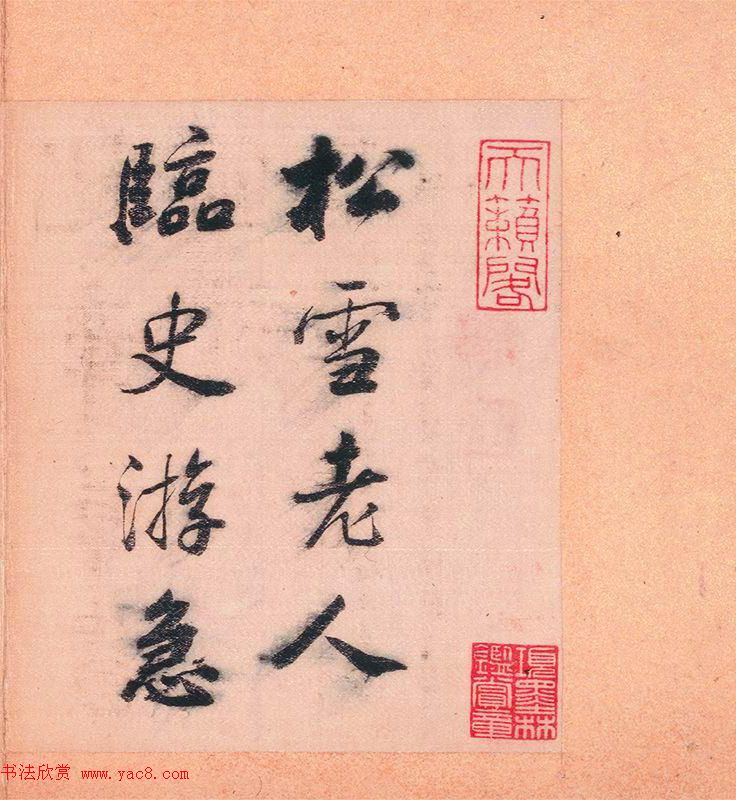 天籟閣
項墨林
鑑賞章
松雪老人
臨史游急
书法欣赏 www.yac8.com